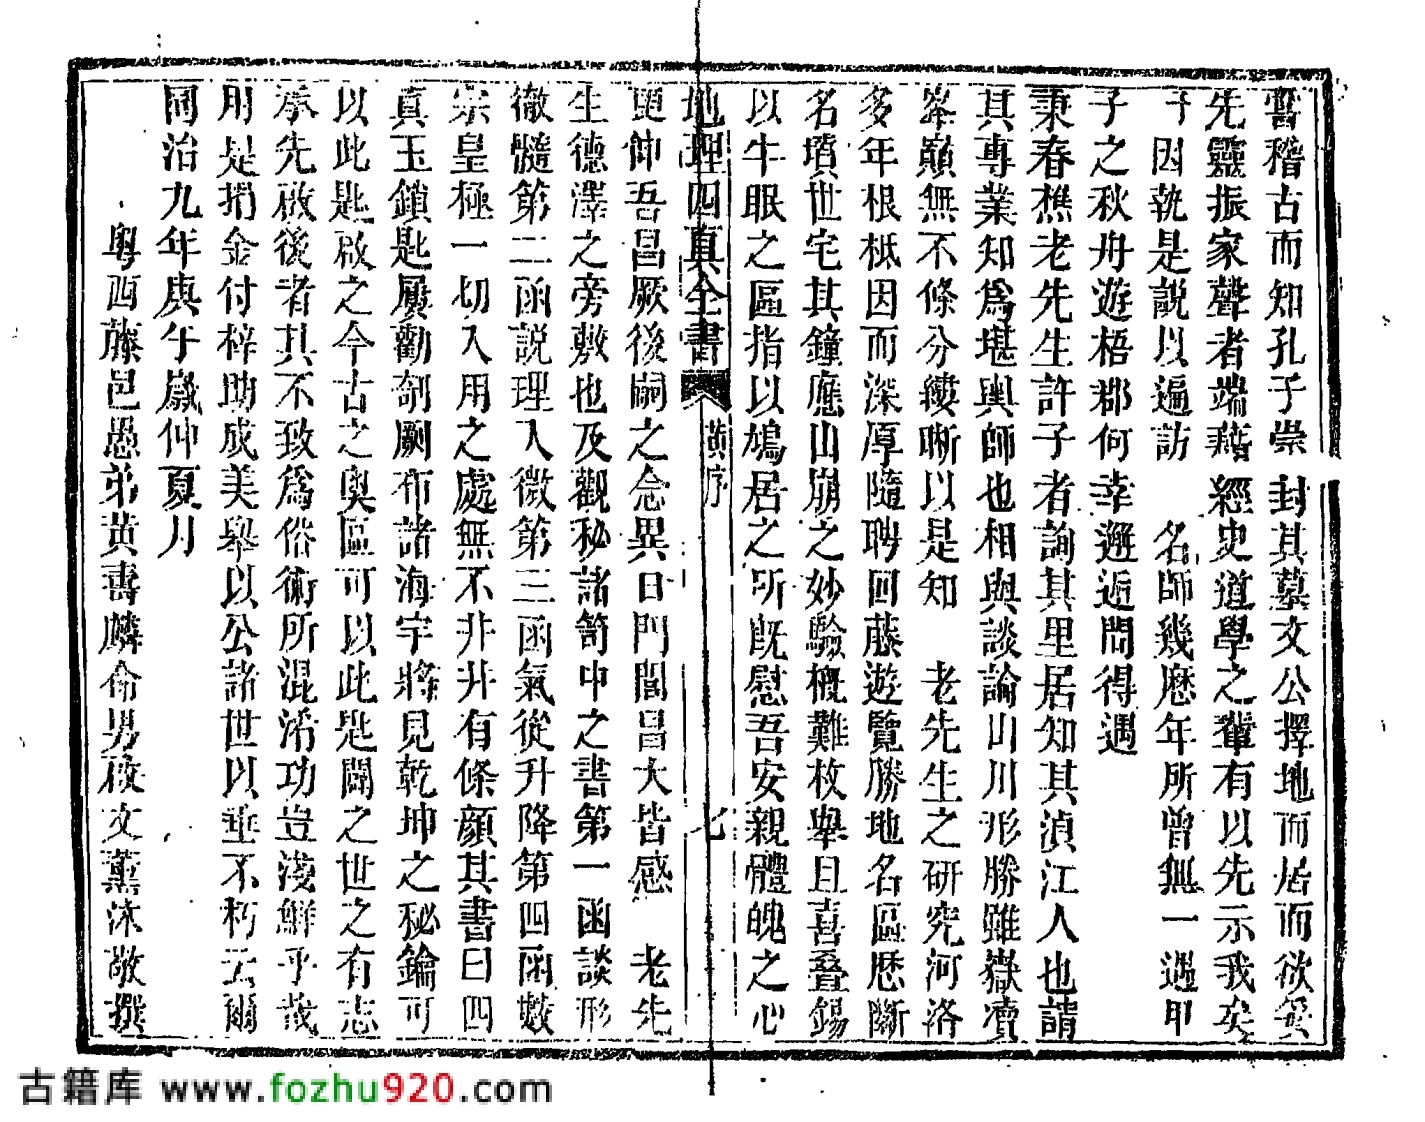 嘗稽古而知孔子崇封其墓文公擇地而居而欲安
先靈振家聲者端藉經史道學之輩有以先示我矣
予因執是說以遍訪　名師幾厯年所曾無一遇甲
子之秋舟遊梧郡何幸邂逅問得遇
秉春樵老先生許子者詢其里居知其湞江人也請
其專業知爲堪輿師也相與談論山川形勝雖嶽瀆
峯巔無不條分縷晰以是知　老先生之研究河洛
多年根柢因而深厚隨聘回藤遊覽勝地名區厯斷
名墳世宅其鐘應山崩之妙驗概難枚舉且喜叠錫
以牛眠之區指以鳩居之所既慰吾安親體魄之心
地理四真全書　黄序　七
更伸吾昌厥後嗣之念異日門閭昌大皆感　老先
生德澤之旁敷也及觀秘諸笥中之書第一函談形
徹髓第二函說理入微第三函氣從升降第四函數
宗皇極一切入用之處無不井井有條顏其書曰四
真玉鎖匙屢勸剞劂布諸海宇將見乾坤之秘鑰可
以此匙啟之今古之奧區可以此匙闢之世之有志
承先啟後者其不致爲俗術所混淆功豈淺鮮乎哉
用是捐金付梓助成美舉以公諸世以垂不朽云爾
同治九年庚午歲仲夏月
粤西藤邑愚弟黄壽麟命男啟文薰沐敬撰
古籍库 www.fozhu920.com